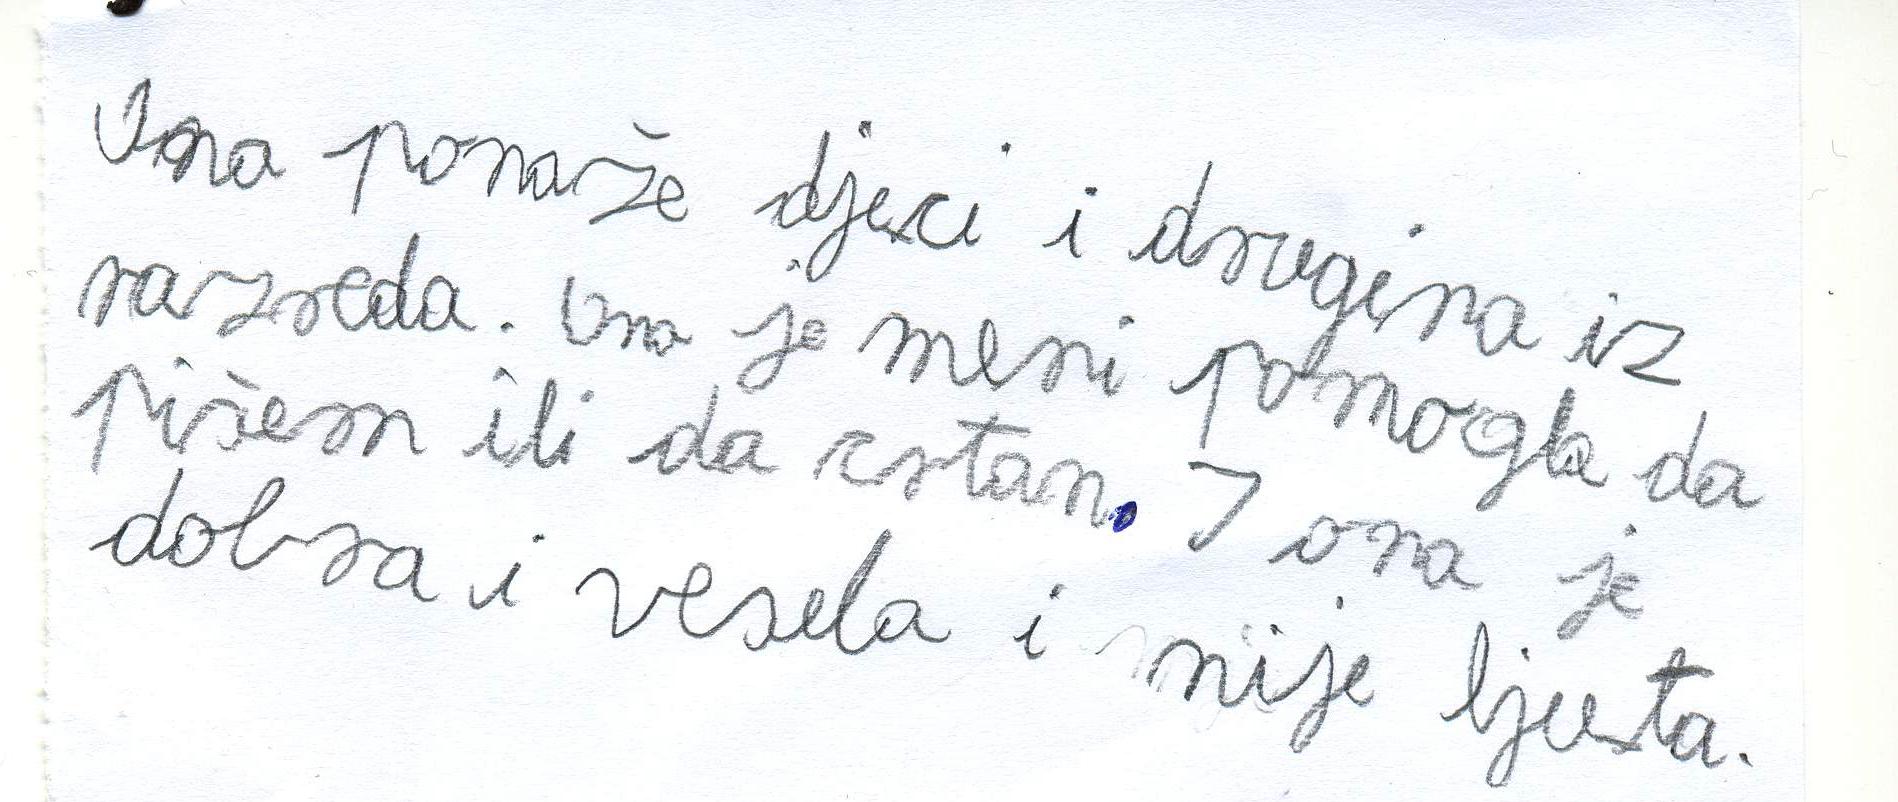 Ona ponaže djeci i drugina iz
razreda. Ona je meni pomogla da
pišem ili da crtan. I ona je
dobra i vesela i nije ljuta.